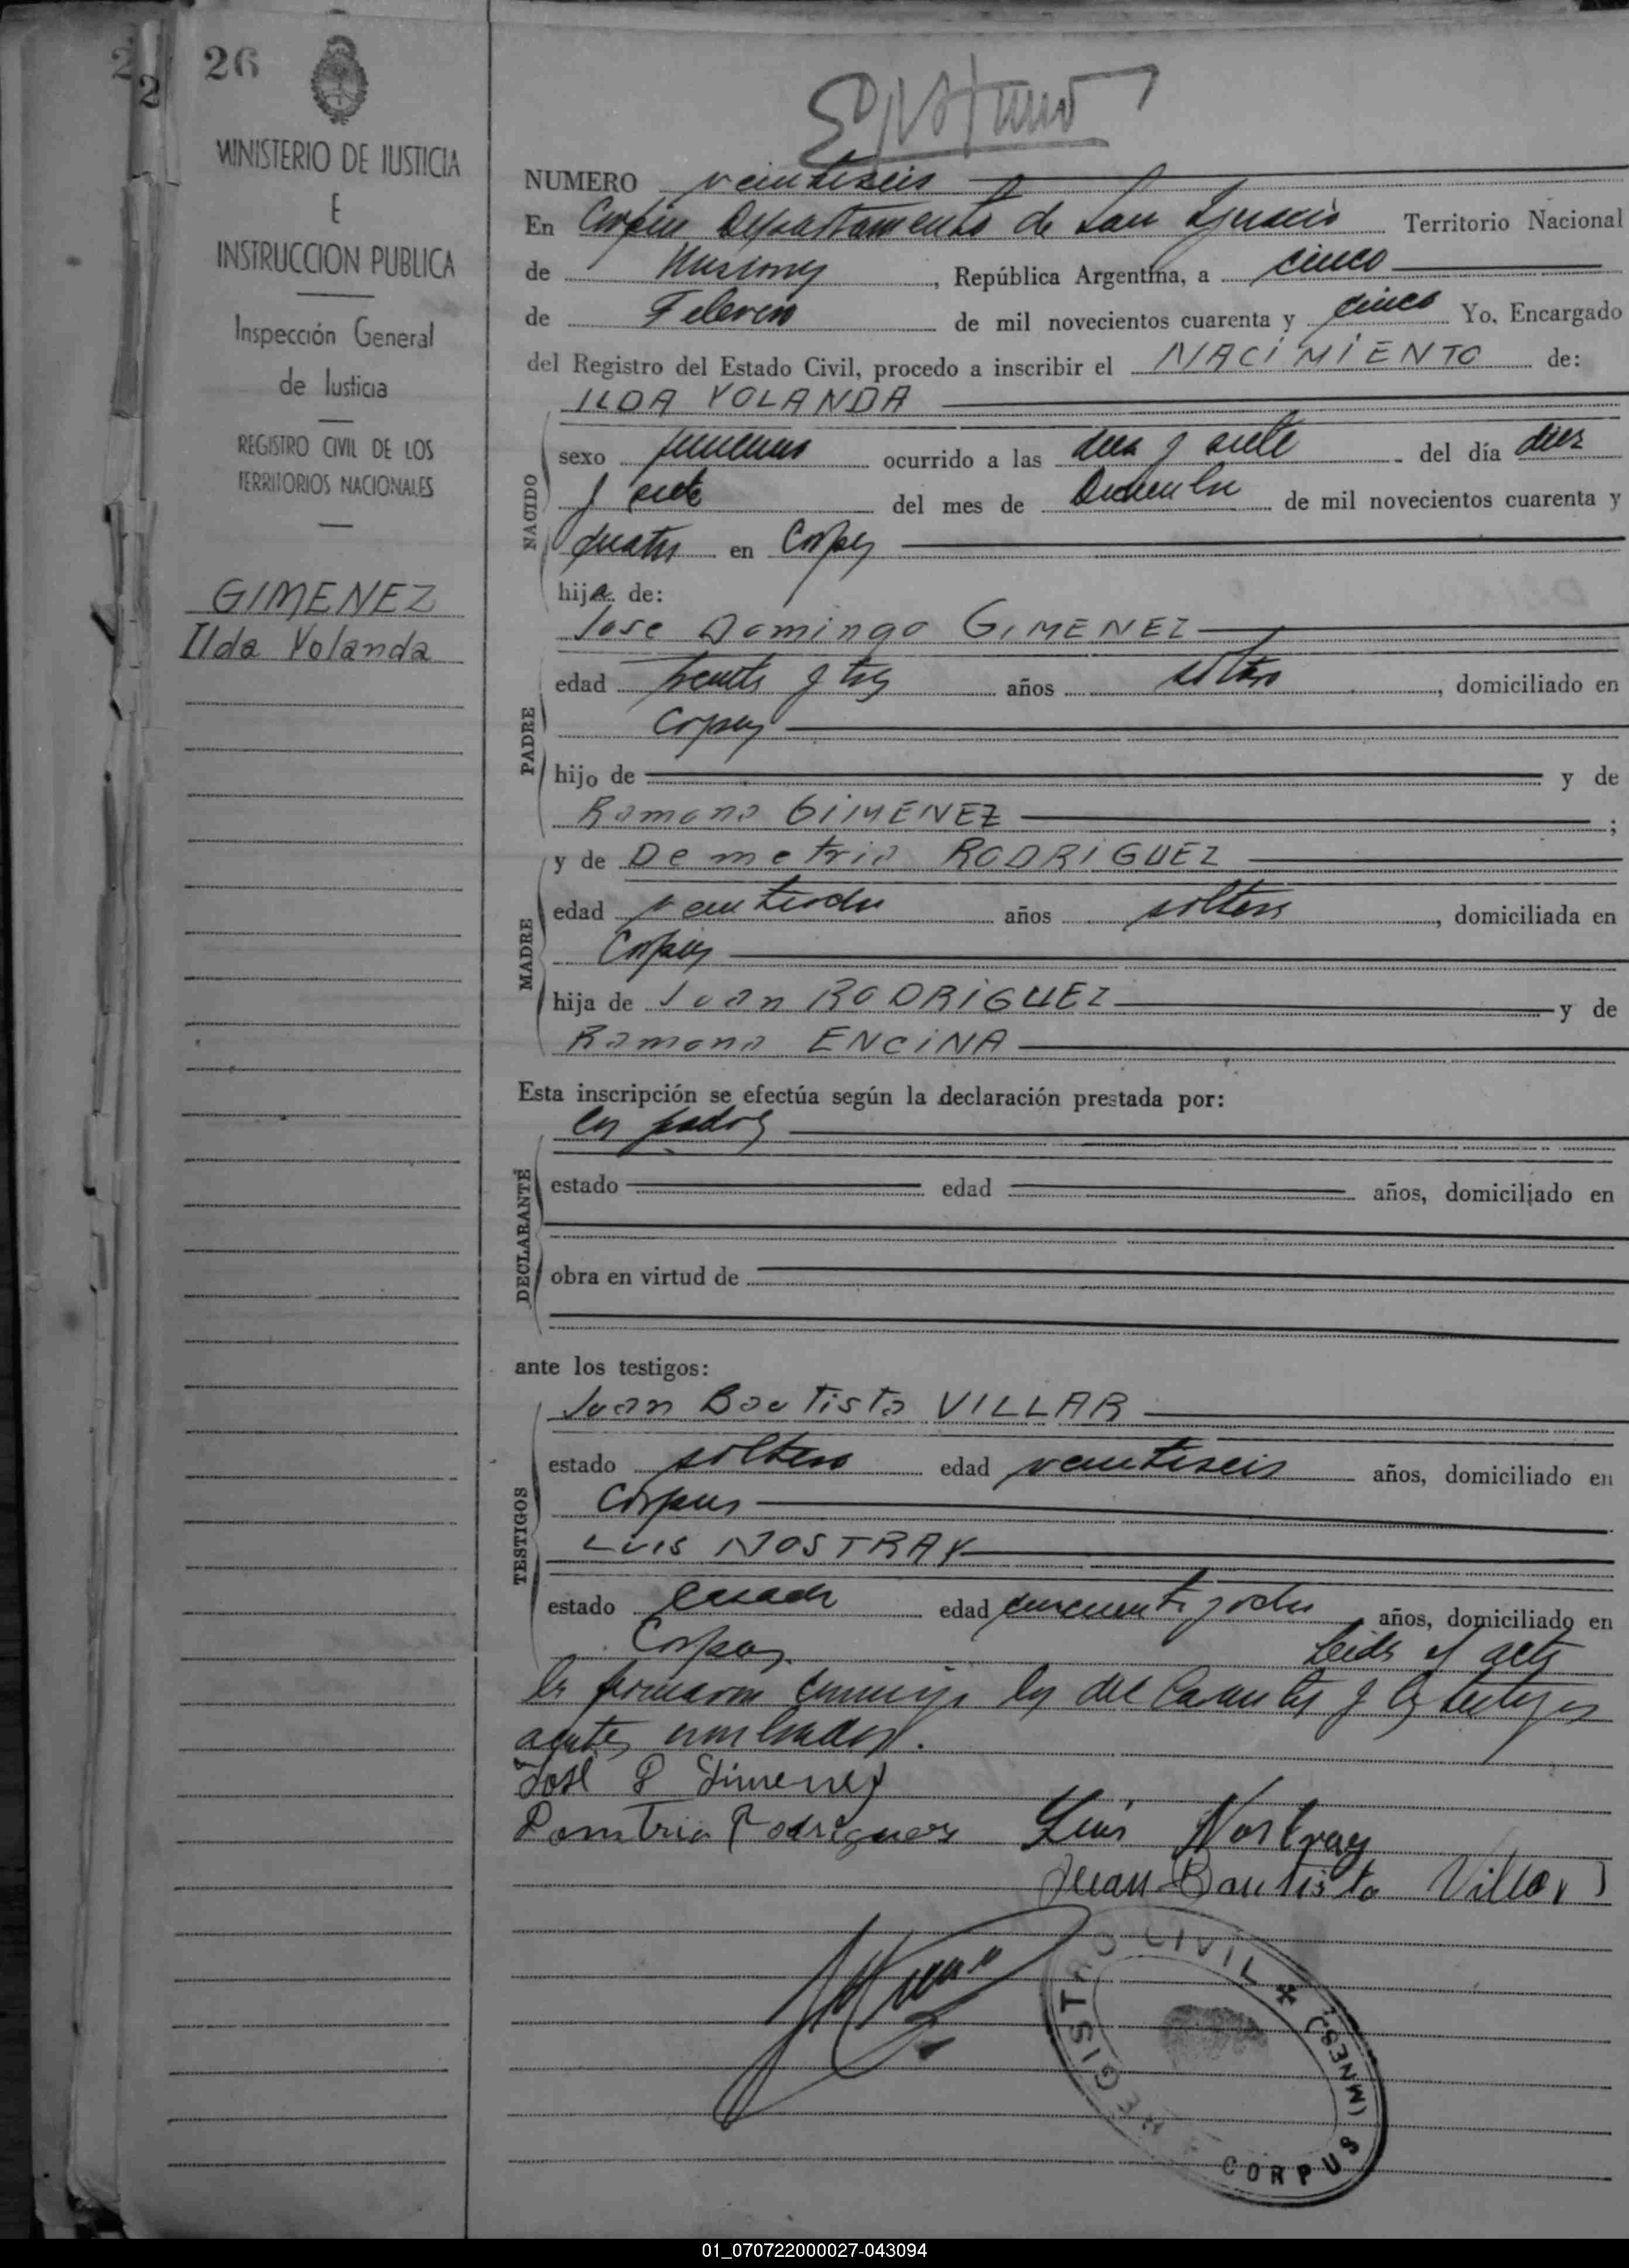 26
2
2
MINISTERIO DE JUSTICIA
E
INSTRUCCION PUBLICA
Inspección General
de Justicia
REGISTRO CIVIL DE LOS
TERRITORIOS NACIONALES
GIMENEZ
Ilda Yolanda
NUMERO veintiseis
En Corpus Departamento de San Ignacio Territorio Nacional
de Misiones, República Argentina, a cinco
de Febrero de mil novecientos cuarenta y cinco Yo, Encargado
del Registro del Estado Civil, procedo a inscribir el NACIMIENTO de:
ILDA YOLANDA
NACIDO
sexo femenino ocurrido a las diez y siete del día diez
y siete del mes de Diciembre de mil novecientos cuarenta y
cuatro en Corpus
hija de:
Jose Domingo GIMENEZ
PADRE
edad treinta y tres años soltero, domiciliado en
Corpus
hijo de y de
Ramona GIMENEZ ;
MADRE
y de Demetria RODRIGUEZ
edad veintiocho años soltera, domiciliada en
Corpus
hija de Juan RODRIGUEZ y de
Ramona ENCINA
Esta inscripción se efectúa según la declaración prestada por:
los padres
DECLARANTE
estado edad años, domiciliado en
obra en virtud de
ante los testigos:
TESTIGOS
Juan Bautista VILLAR
estado soltero edad veintiseis años, domiciliado en
Corpus
LUIS NOSTRAY
estado casado edad cincuenta y ocho años, domiciliado en
Corpus. Leida el acta
la firmaron conmigo los declarantes y los testigos
antes nombrados.
José D Jimenez
Demtria Rodriguez Luis Nostray
Juan Bautista Villar
REGISTRO CIVIL * (MNES) CORPUS
01_070722000027-043094